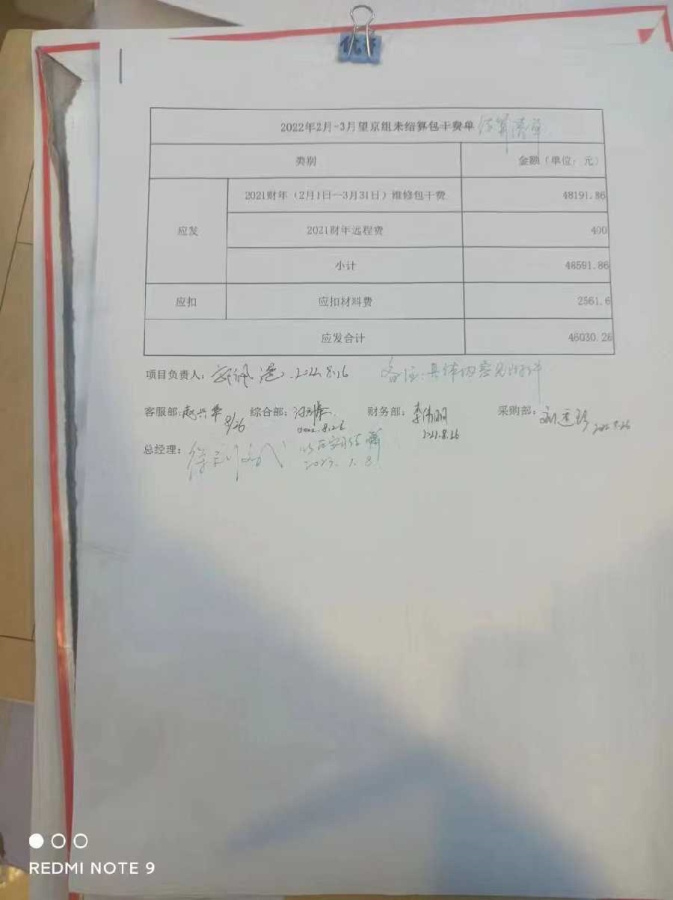 2022年2月-3月望京组未结算包干费单 结算清单
类别 金额（单位：元）
应发 2021财年（2月1日—3月31日）维修包干费 48191.86
2021财年远程费 400
小计 48591.86
应扣 应扣材料费 2561.6
应发合计 46030.26
项目负责人： 2022.8.16 备注：具体内容见附件
客服部： 8/26 综合部： 2022.8.26 财务部： 2022.8.26 采购部：
总经理：
REDMI NOTE 9